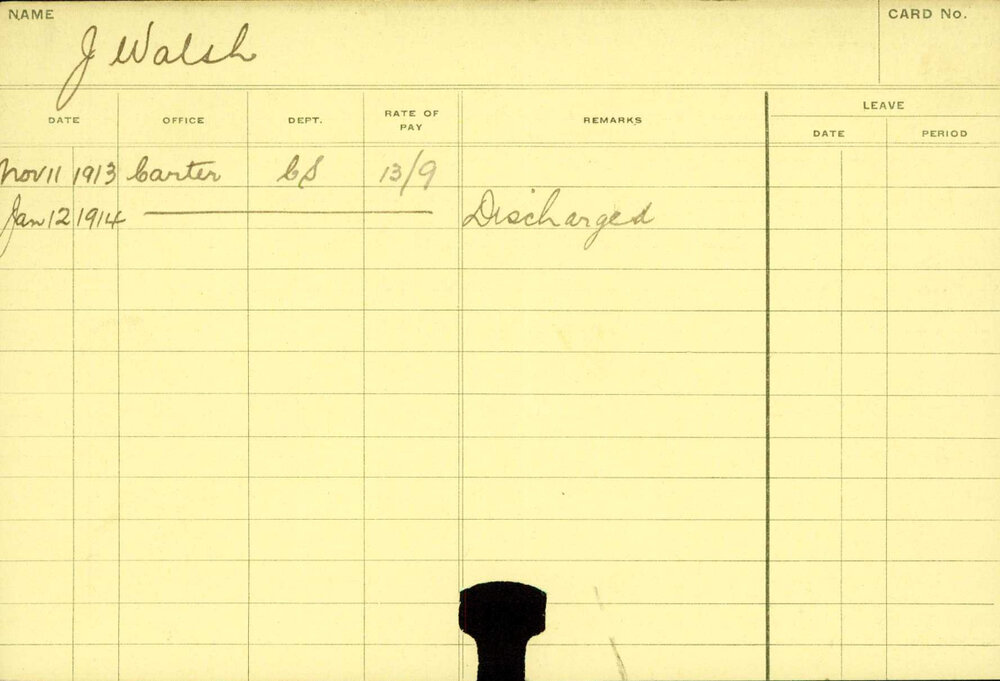 NAME
J Walsh
CARD No.
DATE OFFICE DEPT. RATE OF PAY REMARKS LEAVE
DATE PERIOD
Nov 11 1913 Carter CS 13/9
Jan 12 1914 Discharged